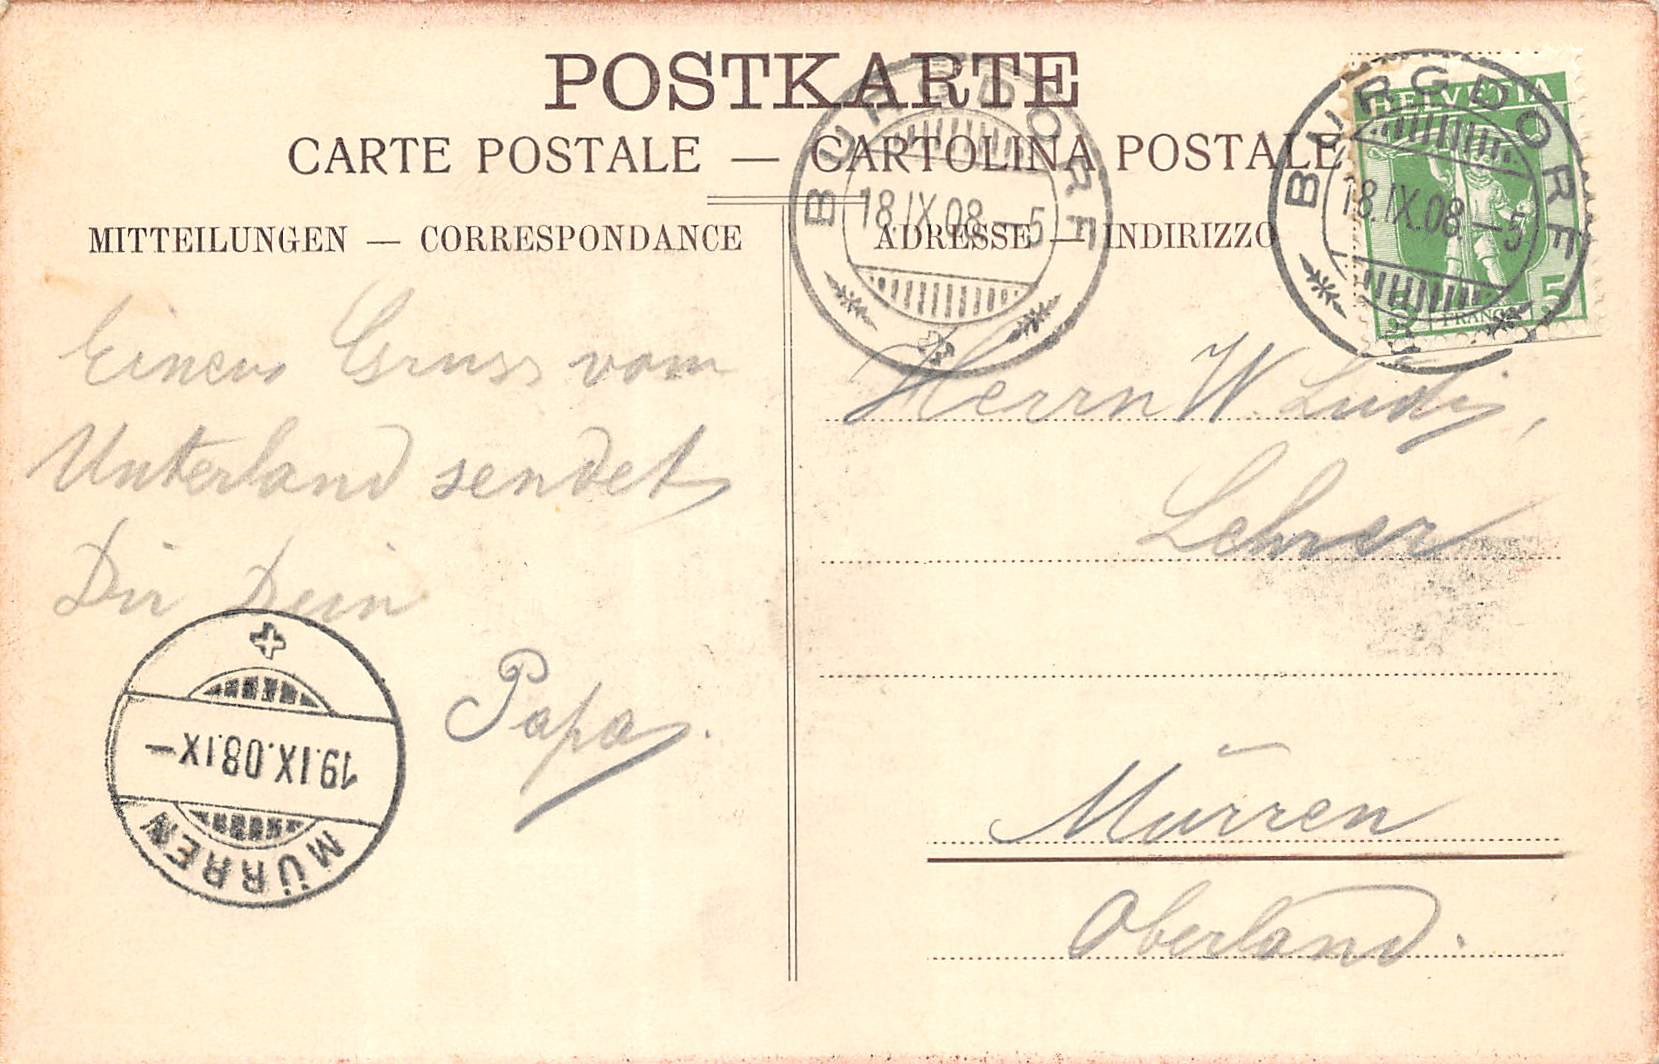 POSTKARTE
CARTE POSTALE — CARTOLINA POSTALE
MITTEILUNGEN — CORRESPONDANCE
ADRESSE — INDIRIZZO
BURGDORF
18.IX.08.—5
BURGDORF
18.IX.08.—5
HELVETIA
5
FRANCO
Einen Gruss vom
Unterland sendet
Dir Dein
Papa.
MÜRREN
19.IX.08.IX—
Herrn W. Ludi,
Lehrer
Mürren
Oberland.